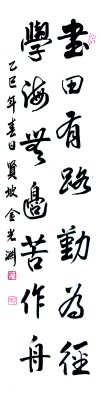 書田有路勤為徑
學海無邊苦作舟
乙巳年春日 賢坡 金光